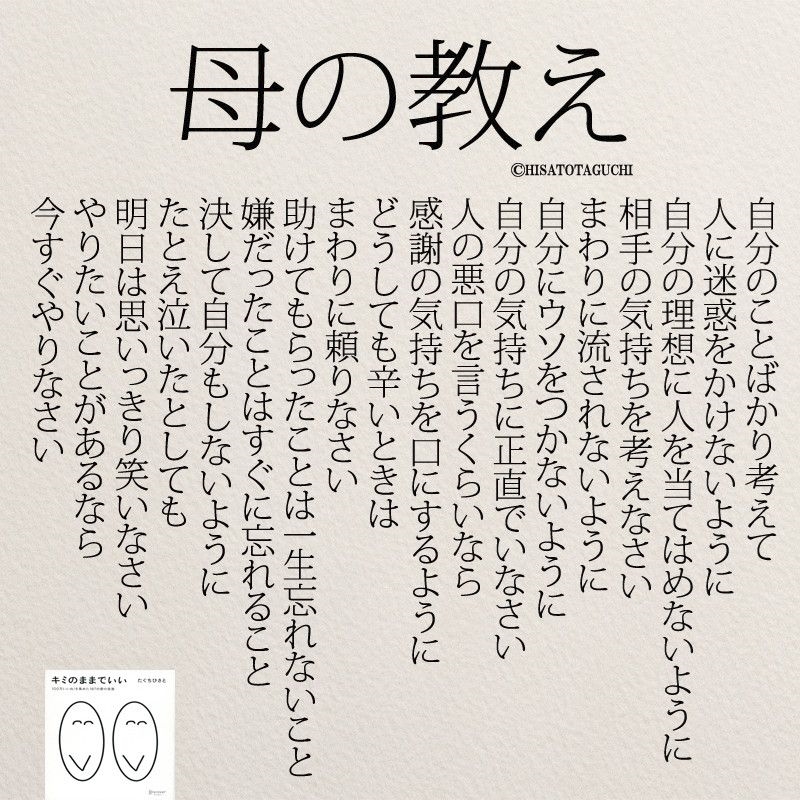 母の教え
©HISATOTAGUCHI
自分のことばかり考えて
人に迷惑をかけないように
自分の理想に人を当てはめないように
相手の気持ちを考えなさい
まわりに流されないように
自分にウソをつかないように
自分の気持ちに正直でいなさい
人の悪口を言うくらいなら
感謝の気持ちを口にするように
どうしても辛いときは
まわりに頼りなさい
助けてもらったことは一生忘れないこと
嫌だったことはすぐに忘れること
決して自分もしないように
たとえ泣いたとしても
明日は思いっきり笑いなさい
やりたいことがあるなら
今すぐやりなさい
キミのままでいい
たぐちひさと